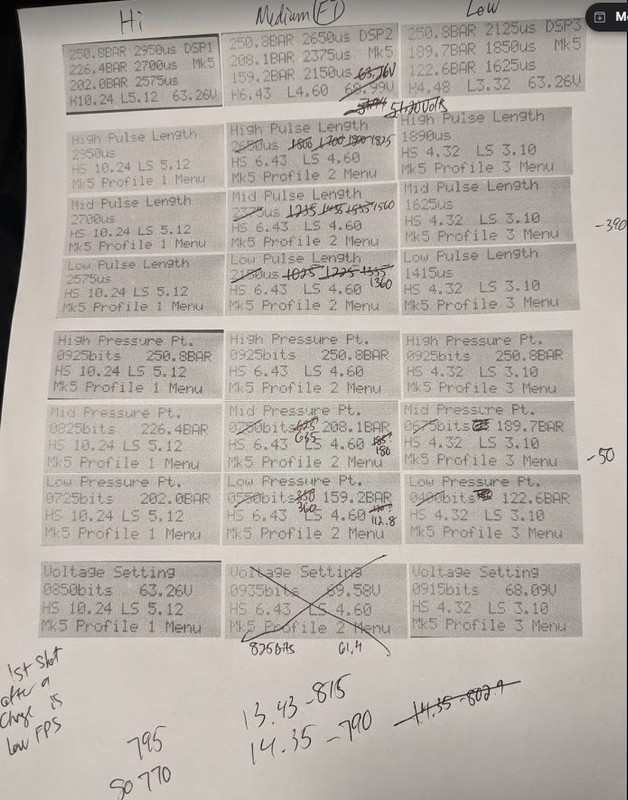 Hi
Medium (FT)
Low
250.8BAR 2950us DSP1
226.4BAR 2700us Mk5
202.0BAR 2575us
H10.24 L5.12 63.26V
250.8BAR 2650us DSP2
208.1BAR 2375us Mk5
159.2BAR 2150us 63.76V
H6.43 L4.60 68.99V
250.8BAR 2125us DSP3
189.7BAR 1850us Mk5
122.6BAR 1625us
H4.48 L3.32 63.26V
High Pulse Length
2950us
HS 10.24 LS 5.12
Mk5 Profile 1 Menu
High Pulse Length
2650us 1800 1700 1800 1825
HS 6.43 LS 4.60
Mk5 Profile 2 Menu
High Pulse Length
1890us
HS 4.32 LS 3.10
Mk5 Profile 3 Menu
Mid Pulse Length
2700us
HS 10.24 LS 5.12
Mk5 Profile 1 Menu
Mid Pulse Length
2375us 1235 1435 1535 1560
HS 6.43 LS 4.60
Mk5 Profile 2 Menu
Mid Pulse Length
1625us
HS 4.32 LS 3.10
Mk5 Profile 3 Menu
-390
Low Pulse Length
2575us
HS 10.24 LS 5.12
Mk5 Profile 1 Menu
Low Pulse Length
2150us 1025 1225 1335
1360
HS 6.43 LS 4.60
Mk5 Profile 2 Menu
Low Pulse Length
1415us
HS 4.32 LS 3.10
Mk5 Profile 3 Menu
High Pressure Pt.
0925bits 250.8BAR
HS 10.24 LS 5.12
Mk5 Profile 1 Menu
High Pressure Pt.
0925bits 250.8BAR
HS 6.43 LS 4.60
Mk5 Profile 2 Menu
High Pressure Pt.
0925bits 250.8BAR
HS 4.32 LS 3.10
Mk5 Profile 3 Menu
Mid Pressure Pt.
0825bits 226.4BAR
HS 10.24 LS 5.12
Mk5 Profile 1 Menu
Mid Pressure Pt.
0750bits 675 208.1BAR
HS 6.43 655 LS 4.60 180
Mk5 Profile 2 Menu
Mid Pressure Pt.
0675bits 189.7BAR
HS 4.32 LS 3.10
Mk5 Profile 3 Menu
-50
Low Pressure Pt.
0725bits 202.0BAR
HS 10.24 LS 5.12
Mk5 Profile 1 Menu
Low Pressure Pt.
0550bits 350 159.2BAR
HS 6.43 360 LS 4.60 112.8
Mk5 Profile 2 Menu
Low Pressure Pt.
0400bits 122.6BAR
HS 4.32 LS 3.10
Mk5 Profile 3 Menu
Voltage Setting
0850bits 63.26V
HS 10.24 LS 5.12
Mk5 Profile 1 Menu
Voltage Setting
0935bits 69.58V
HS 6.43 LS 4.60
Mk5 Profile 2 Menu
825bits 61.4
Voltage Setting
0915bits 68.09V
HS 4.32 LS 3.10
Mk5 Profile 3 Menu
1st Shot
after a
Charge is
low FPS
795
So 770
13.43 -815
14.35 -790
14.35 -802.9